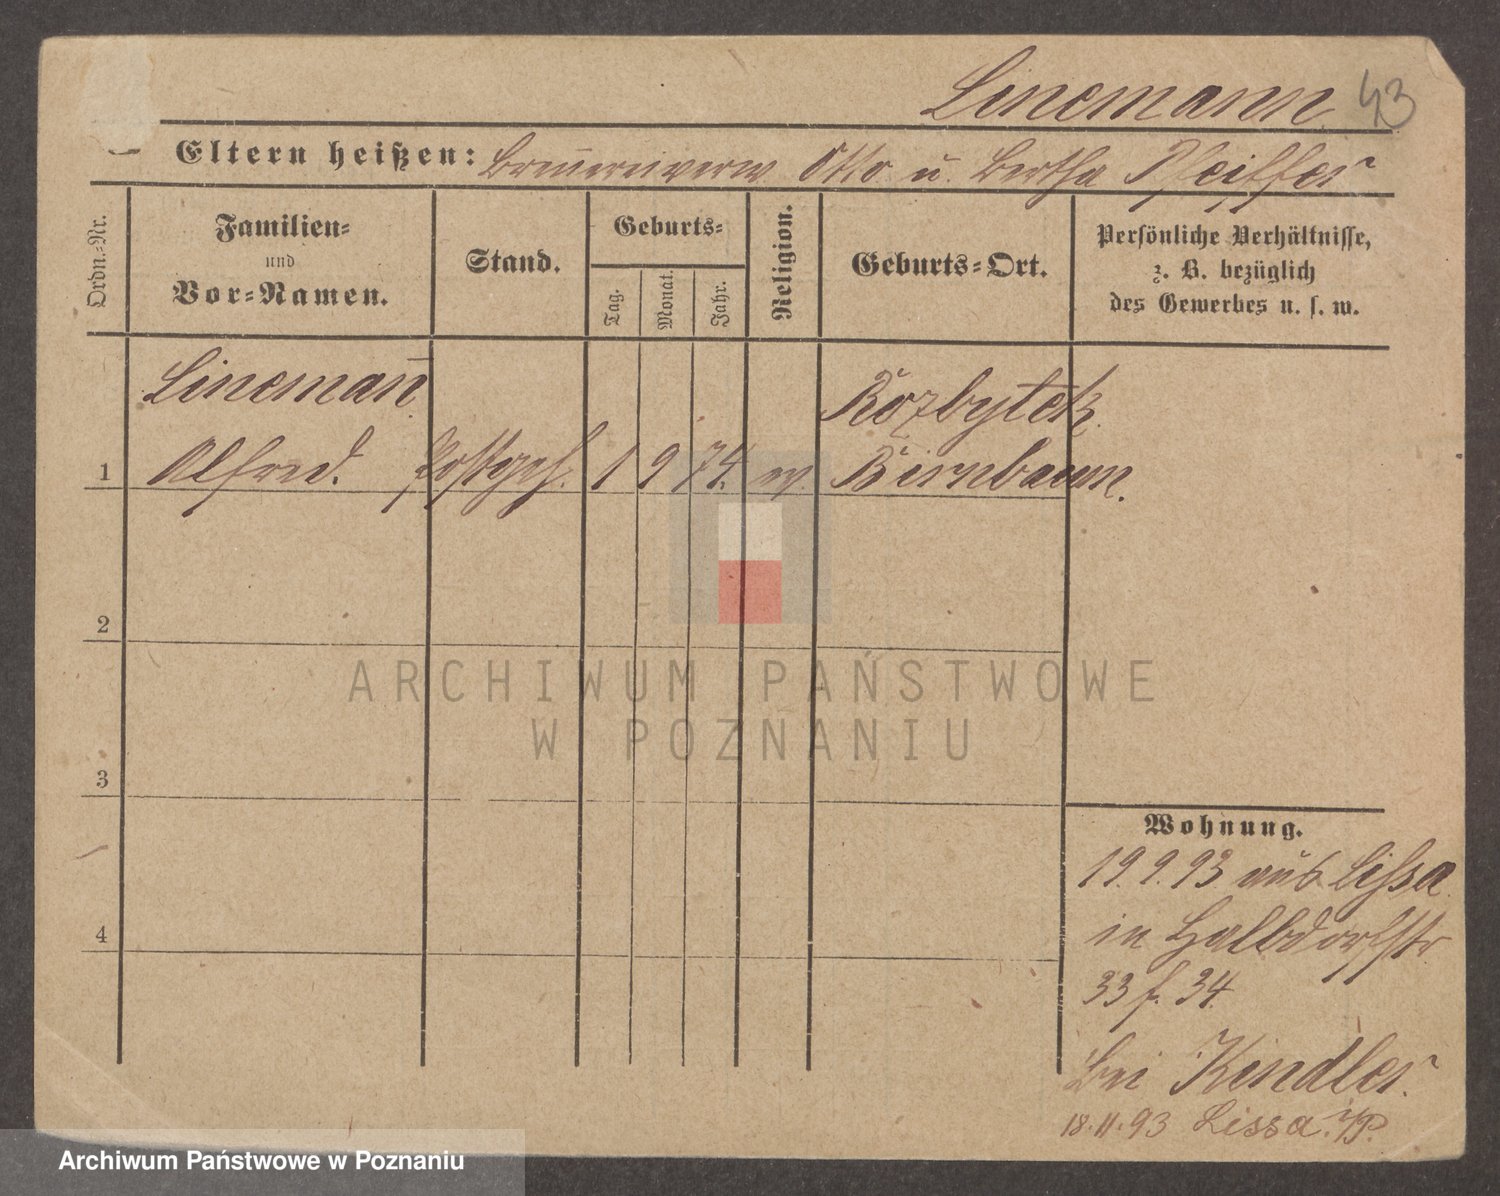 Linemann 43
Eltern heißen: Brauereiverw. Otto u. Bertha Pfeiffer
Ordn.-Nr.
Familien-
und
Vor-Namen.
Stand.
Geburts-
Tag.
Monat.
Jahr.
Religion.
Geburts-Ort.
Persönliche Verhältnisse,
z. B. bezüglich
des Gewerbes u. s. w.
Lineman̄ Rozbytek
1 Alfred. Postgeh. 1 9 74. ev Birnbaum.
2
3
4
Wohnung.
19.9.93 aus Lissa
in Halbdorfstr
33 f. 34.
bei Kindler.
18.11.93 Lissa i/P.
ARCHIWUM PAŃSTWOWE
W POZNANIU
Archiwum Państwowe w Poznaniu